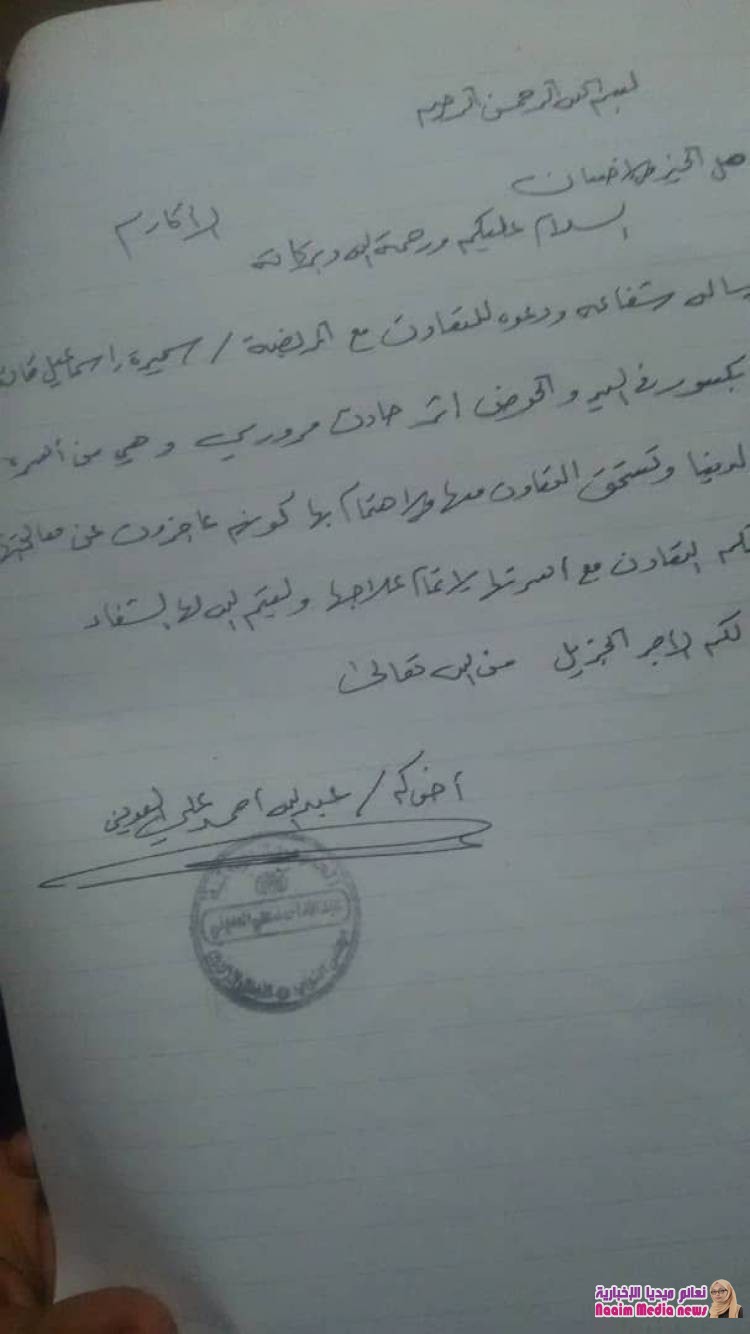 بسم الله الرحمن الرحيم
هل الخير والاحسان
الاكارم
السلام عليكم ورحمة الله وبركاته
ساله شفاعه ودعوه للتعاون مع المريضة / سميرة اسماعيل
بكسور في اليد والحوض اثر حادث مروري وهي من أسرة
لدينا وتستحق التعاون معها والاهتمام بها كونهم عاجزون عن معالجتها
التعاون مع اسرتها لاتمام علاجها وليتم الله لها بالشفاء
لكم الاجر الجزيل من الله تعالى
أخوكم / عبدالله احمد علي العديني
عبدالله احمد علي العديني
نعائم ميديا الإخبارية
Naaim Media news